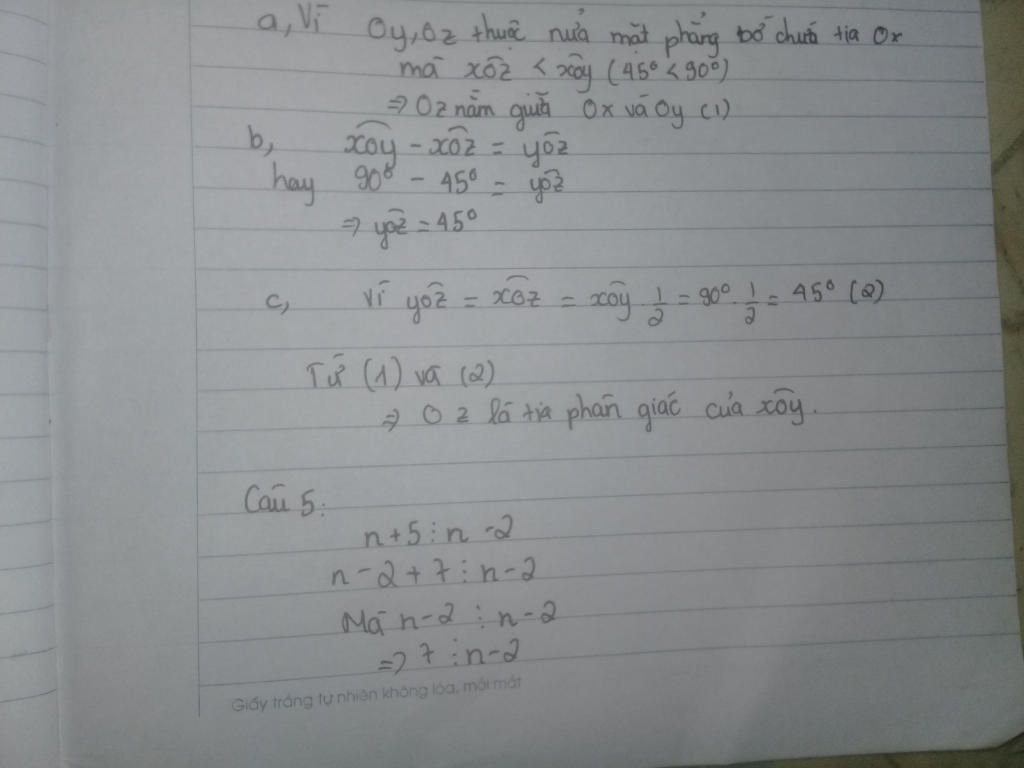 a, Vì Oy, Oz thuộc nửa mặt phẳng bờ chứa tia Ox
mà xÔz < xÔy (45° < 90°)
⇒ Oz nằm giữa Ox và Oy (1)
b, xÔy - xÔz = yÔz
hay 90° - 45° = yÔz
⇒ yÔz = 45°
c, Vì yÔz = xÔz = xÔy . 1/2 = 90° . 1/2 = 45° (2)
Từ (1) và (2)
⇒ Oz là tia phân giác của xÔy.
Câu 5:
n+5 ⋮ n-2
n-2+7 ⋮ n-2
Mà n-2 ⋮ n-2
⇒ 7 ⋮ n-2
Giấy trắng tự nhiên không lóa, mỏi mắt